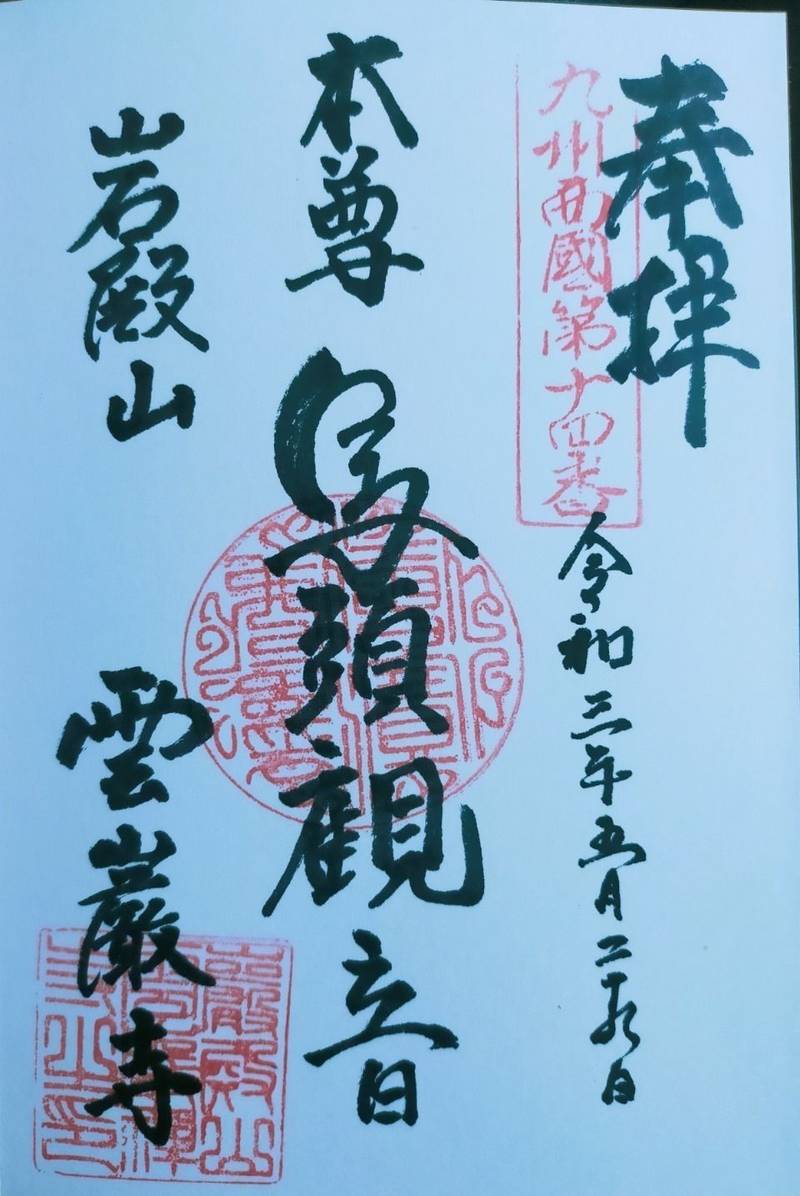 奉拝
九州西國第十四番
令和三年五月二十九日
本尊 馬頭観音
岩殿山 雲巌寺